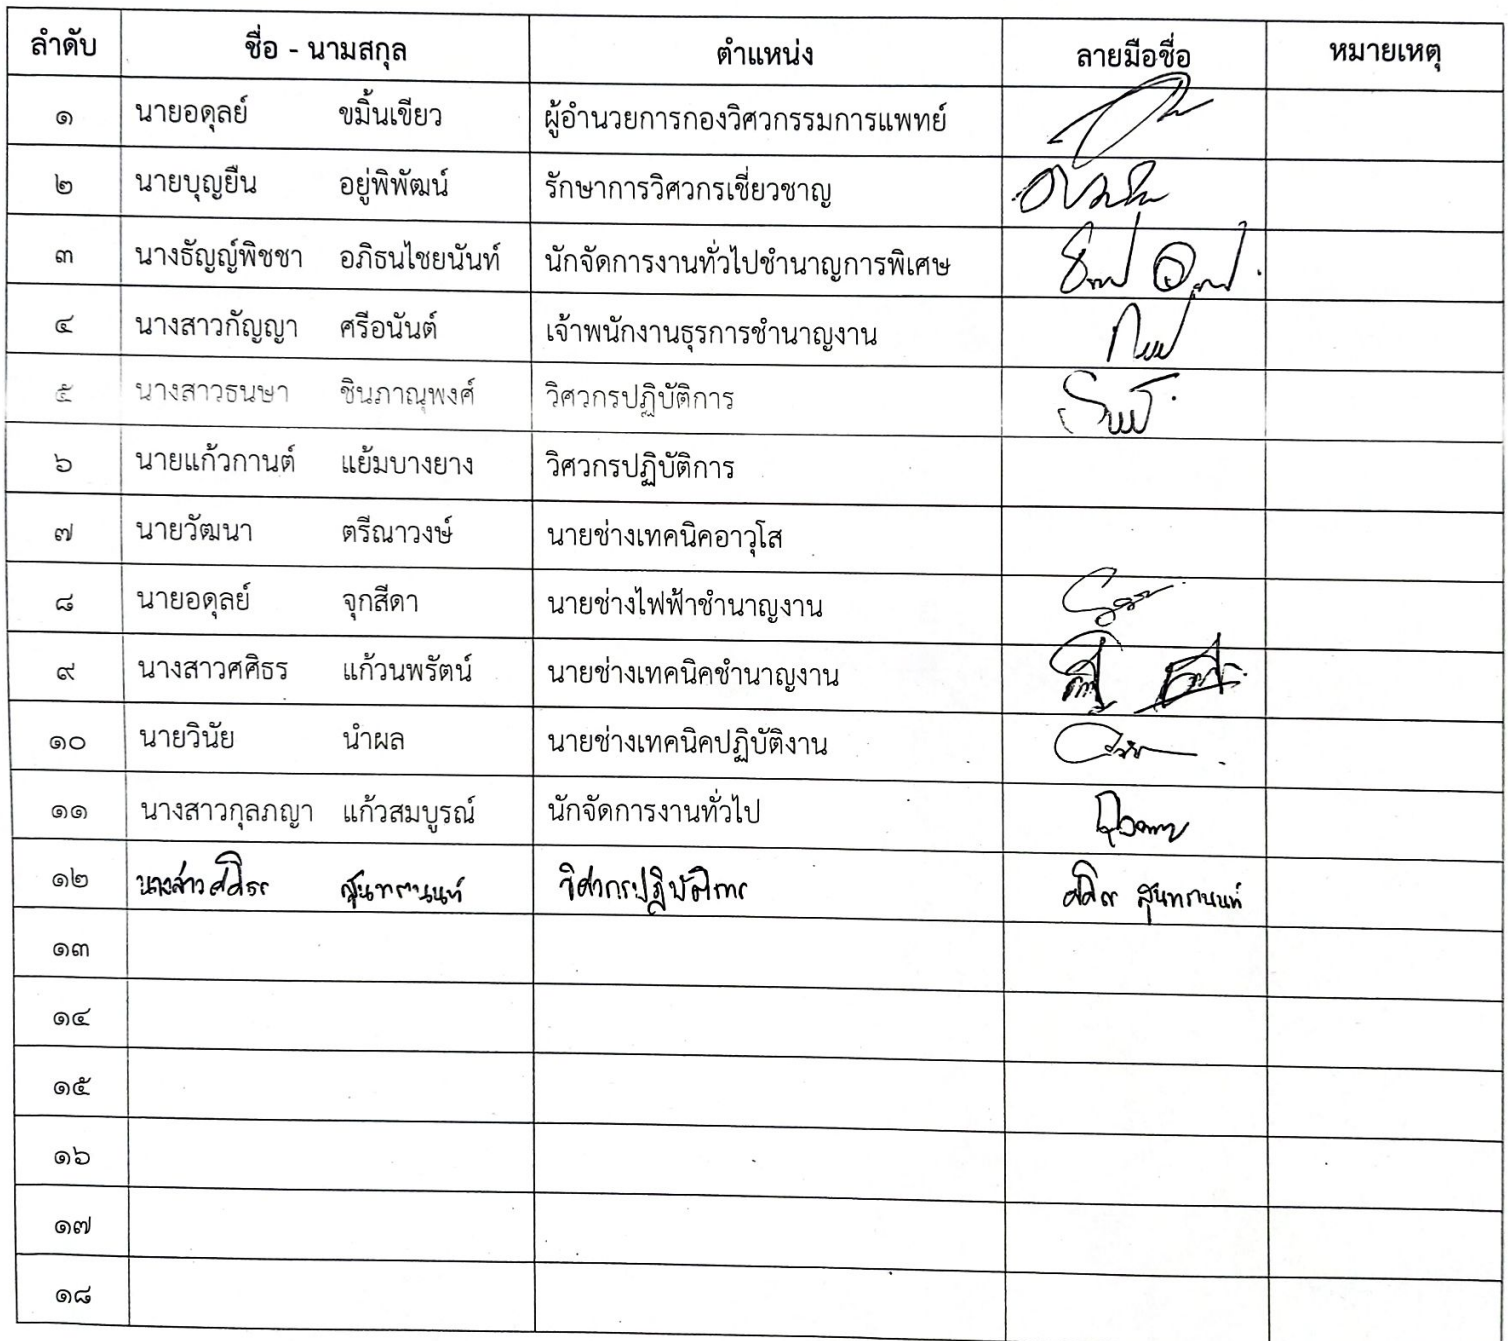 ลำดับ ชื่อ - นามสกุล ตำแหน่ง ลายมือชื่อ หมายเหตุ
๑ นายอดุลย์ ขมิ้นเขียว ผู้อำนวยการกองวิศวกรรมการแพทย์
๒ นายบุญยืน อยู่พิพัฒน์ รักษาการวิศวกรเชี่ยวชาญ
๓ นางธัญญ์พิชชา อภิธนไชยนันท์ นักจัดการงานทั่วไปชำนาญการพิเศษ
๔ นางสาวกัญญา ศรีอนันต์ เจ้าพนักงานธุรการชำนาญงาน
๕ นางสาวธนษา ชินภาณุพงศ์ วิศวกรปฏิบัติการ
๖ นายแก้วกานต์ แย้มบางยาง วิศวกรปฏิบัติการ
๗ นายวัฒนา ตรีณาวงษ์ นายช่างเทคนิคอาวุโส
๘ นายอดุลย์ จุกสีดา นายช่างไฟฟ้าชำนาญงาน
๙ นางสาวศศิธร แก้วนพรัตน์ นายช่างเทคนิคชำนาญงาน
๑๐ นายวินัย นำผล นายช่างเทคนิคปฏิบัติงาน
๑๑ นางสาวกุลภญา แก้วสมบูรณ์ นักจัดการงานทั่วไป
๑๒ นางสาวศศิธร สุนทรานนท์ วิศวกรปฏิบัติการ สุนทรานนท์
๑๓
๑๔
๑๕
๑๖
๑๗
๑๘